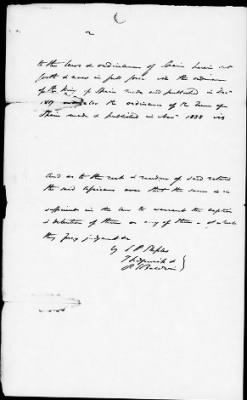 2
to the laws & ordinances of Spain herein set
forth & were in full force viz the ordinance
of the King of Spain made and published in Dec
1817 and also the ordinance of the Queen of
Spain made & published in Nov 1838 viz
And as to the rest & residue of said return
the said Africans aver that the same is in
sufficient in the law to warrant the caption
& detention of them or any of them - & of which
they pray judgment &c
by S P Staples
T Sedgwick &
R S Baldwin